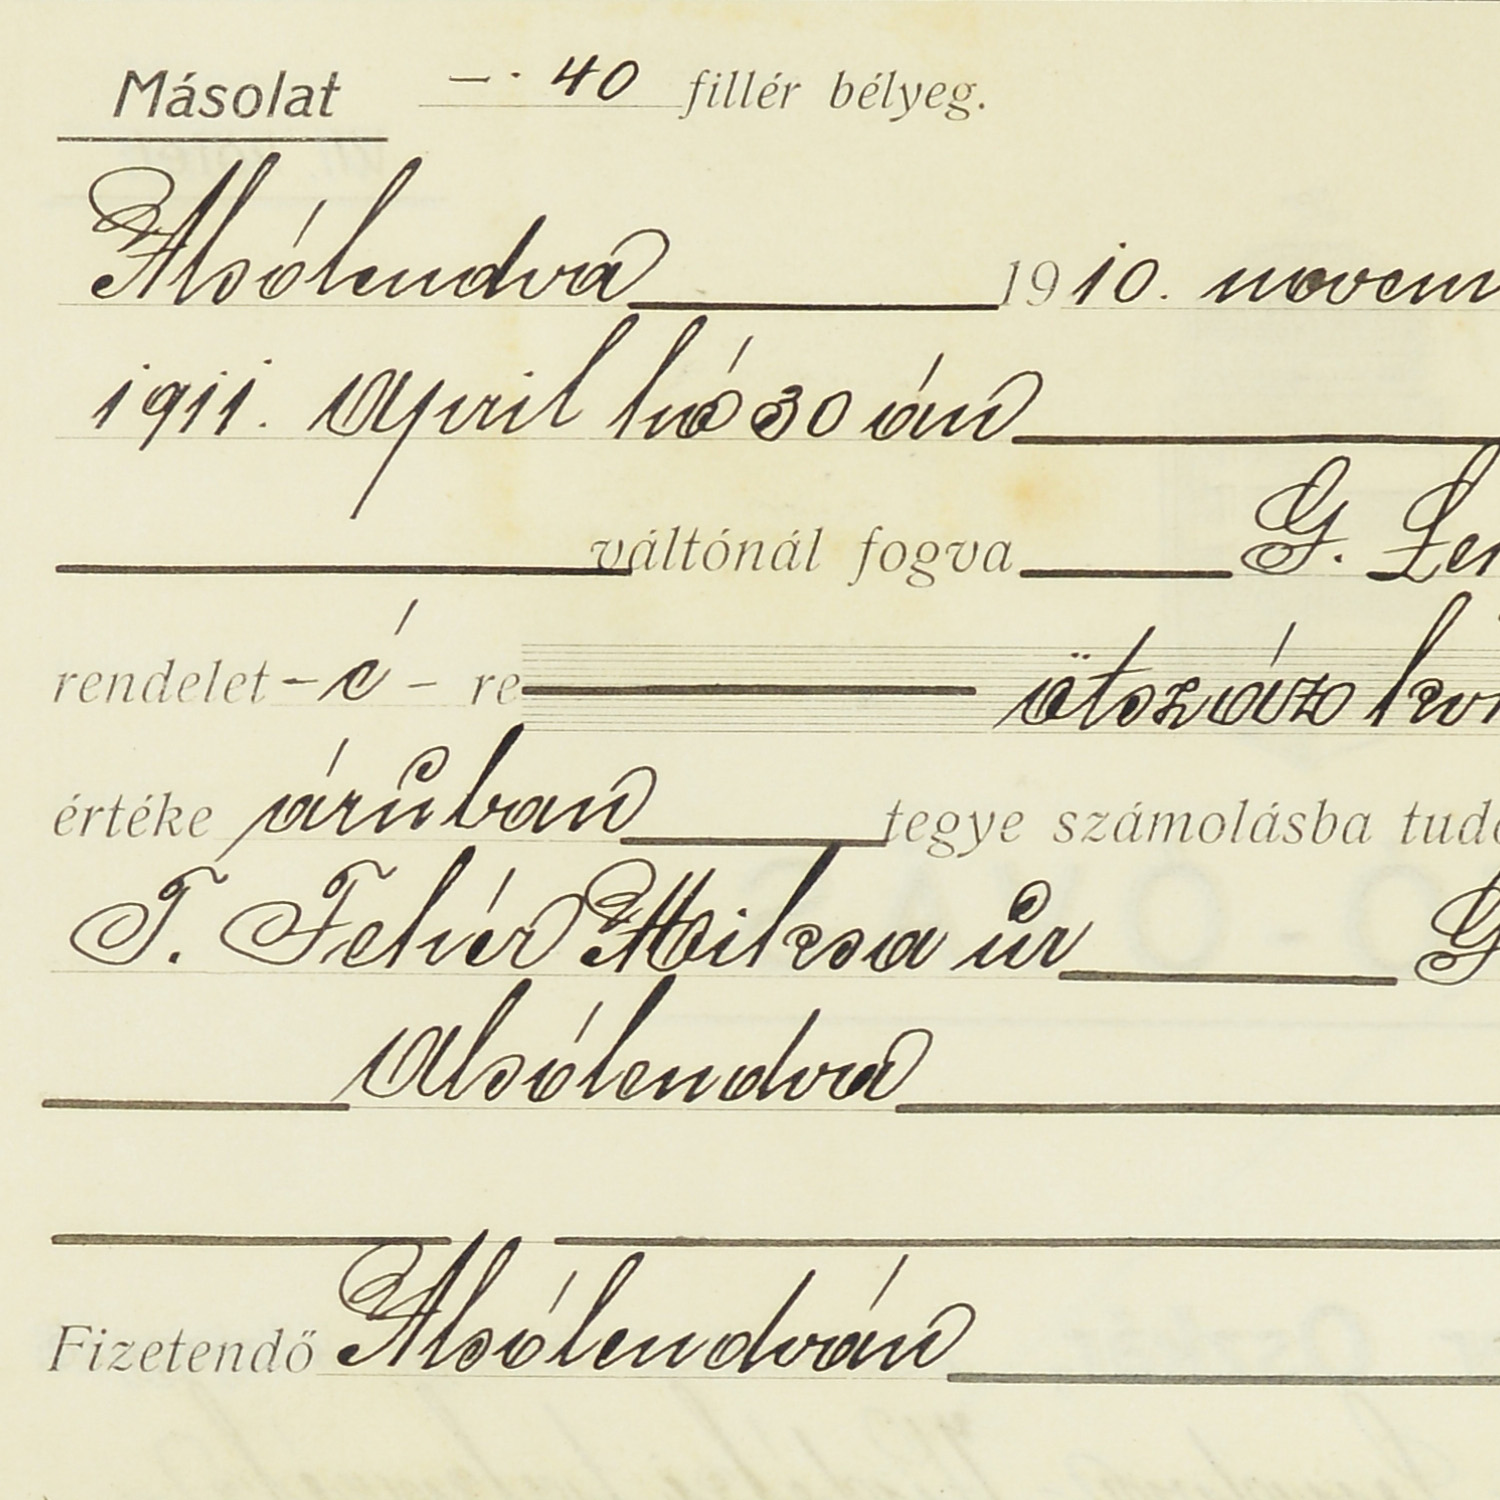 Másolat —· 40 fillér bélyeg.
Alsólendva 1910. novem
1911. April hó 30 án
váltónál fogva G. Len
rendelet - é - re ötszáz kor
értéke árúban tegye számolásba tudó
T. Fehér Miksa úr G
Alsólendva
Fizetendő Alsólendván